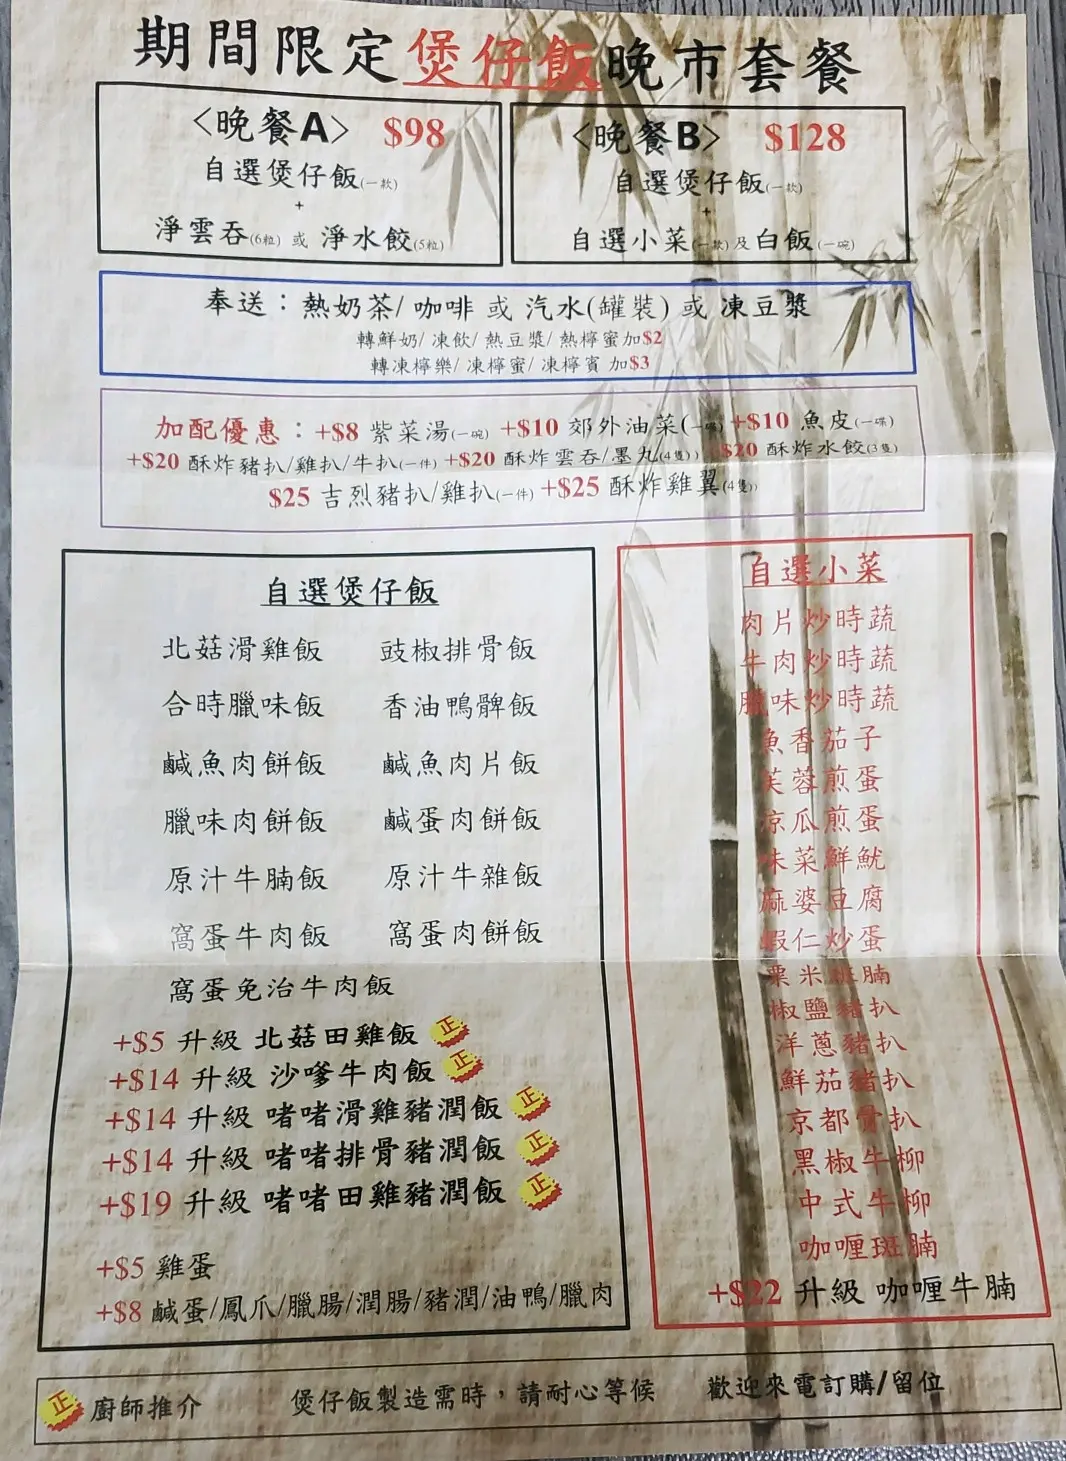 期間限定煲仔飯晚市套餐
〈晚餐A〉 $98
自選煲仔飯(一款)
+
淨雲吞(6粒) 或 淨水餃(5粒)
〈晚餐B〉 $128
自選煲仔飯(一款)
+
自選小菜(一款) 及 白飯(一碗)
奉送：熱奶茶/ 咖啡 或 汽水(罐裝) 或 凍豆漿
轉鮮奶/ 凍飲/ 熱豆漿/ 熱檸蜜加$2
轉凍檸樂/ 凍檸蜜/ 凍檸賓 加$3
加配優惠：+$8 紫菜湯(一碗) +$10 郊外油菜(一碟) +$10 魚皮(一碟)
+$20 酥炸豬扒/雞扒/牛扒(一件) +$20 酥炸雲吞/墨丸(4隻)) $20 酥炸水餃(3隻)
$25 吉烈豬扒/雞扒(一件) +$25 酥炸雞翼(4隻))
自選煲仔飯
北菇滑雞飯 豉椒排骨飯
合時臘味飯 香油鴨髀飯
鹹魚肉餅飯 鹹魚肉片飯
臘味肉餅飯 鹹蛋肉餅飯
原汁牛腩飯 原汁牛雜飯
窩蛋牛肉飯 窩蛋肉餅飯
窩蛋免治牛肉飯
+$5 升級 北菇田雞飯 正
+$14 升級 沙嗲牛肉飯 正
+$14 升級 啫啫滑雞豬潤飯 正
+$14 升級 啫啫排骨豬潤飯 正
+$19 升級 啫啫田雞豬潤飯 正
+$5 雞蛋
+$8 鹹蛋/鳳爪/臘腸/潤腸/豬潤/油鴨/臘肉
自選小菜
肉片炒時蔬
牛肉炒時蔬
臘味炒時蔬
魚香茄子
芙蓉煎蛋
涼瓜煎蛋
味菜鮮魷
麻婆豆腐
蝦仁炒蛋
粟米斑腩
椒鹽豬扒
洋蔥豬扒
鮮茄豬扒
京都骨扒
黑椒牛柳
中式牛柳
咖喱斑腩
+$22 升級 咖喱牛腩
正 廚師推介 煲仔飯製造需時，請耐心等候 歡迎來電訂購/留位